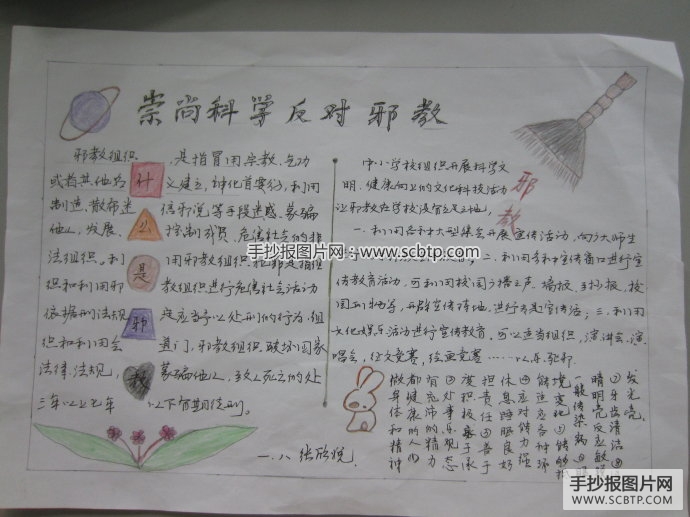 崇尚科学反对邪教
什
么
是
邪
教
邪教组织,是指冒用宗教、气功
或者其他名义建立,神化首要分子,利用
制造、散布迷信邪说等手段迷惑、蒙骗
他人,发展、控制成员,危害社会的非
法组织。利用邪教组织犯罪是指组
织和利用邪教组织进行危害社会活动
依据刑法规是应当予以处刑的行为,组
织和利用会道门,邪教组织,破坏国家
法律、法规,蒙骗他人,致人死亡的处
三年以上七年以下有期徒刑。
邪
教
中小学校组织开展科学文
明、健康向上的文化科技活动
让邪教在学校没有立足之地,
一、利用各种大型集会开展宣传活动,向广大师生
二、利用多种宣传窗口进行宣
传教育活动,可利用校园广播之声、墙报、手抄报、校
园刊物等,开辟宣传阵地,进行专题宣传活;三、利用
文化娱乐活动进行宣传教育,可以适当组织,演讲会、演
唱会,征文竞赛,绘画竞赛……以乐驱邪.
一.八 张欣悦
手抄报图片网
www.scbtp.com
手抄报图片网
WWW.SCBTP.COM